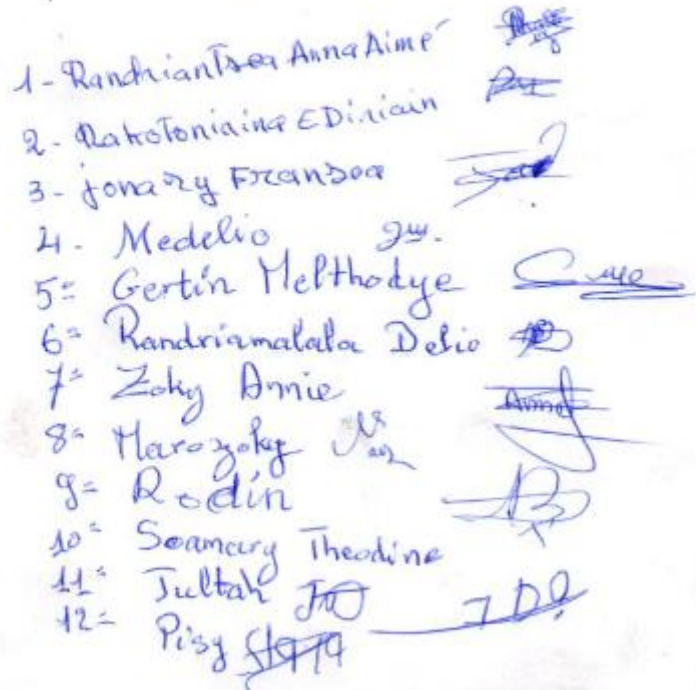 1- Randriantsea Anna Aimé
2- Rakotoniaina EDiriain
3- jonary Fransoa
4- Medelio
5= Gertin Melthodye
6= Randriamalala Delio
7= Zoky Annie
8= Marozoky
9= Rodin
10= Soamary Theodine
11= Jultah
12= Pisy